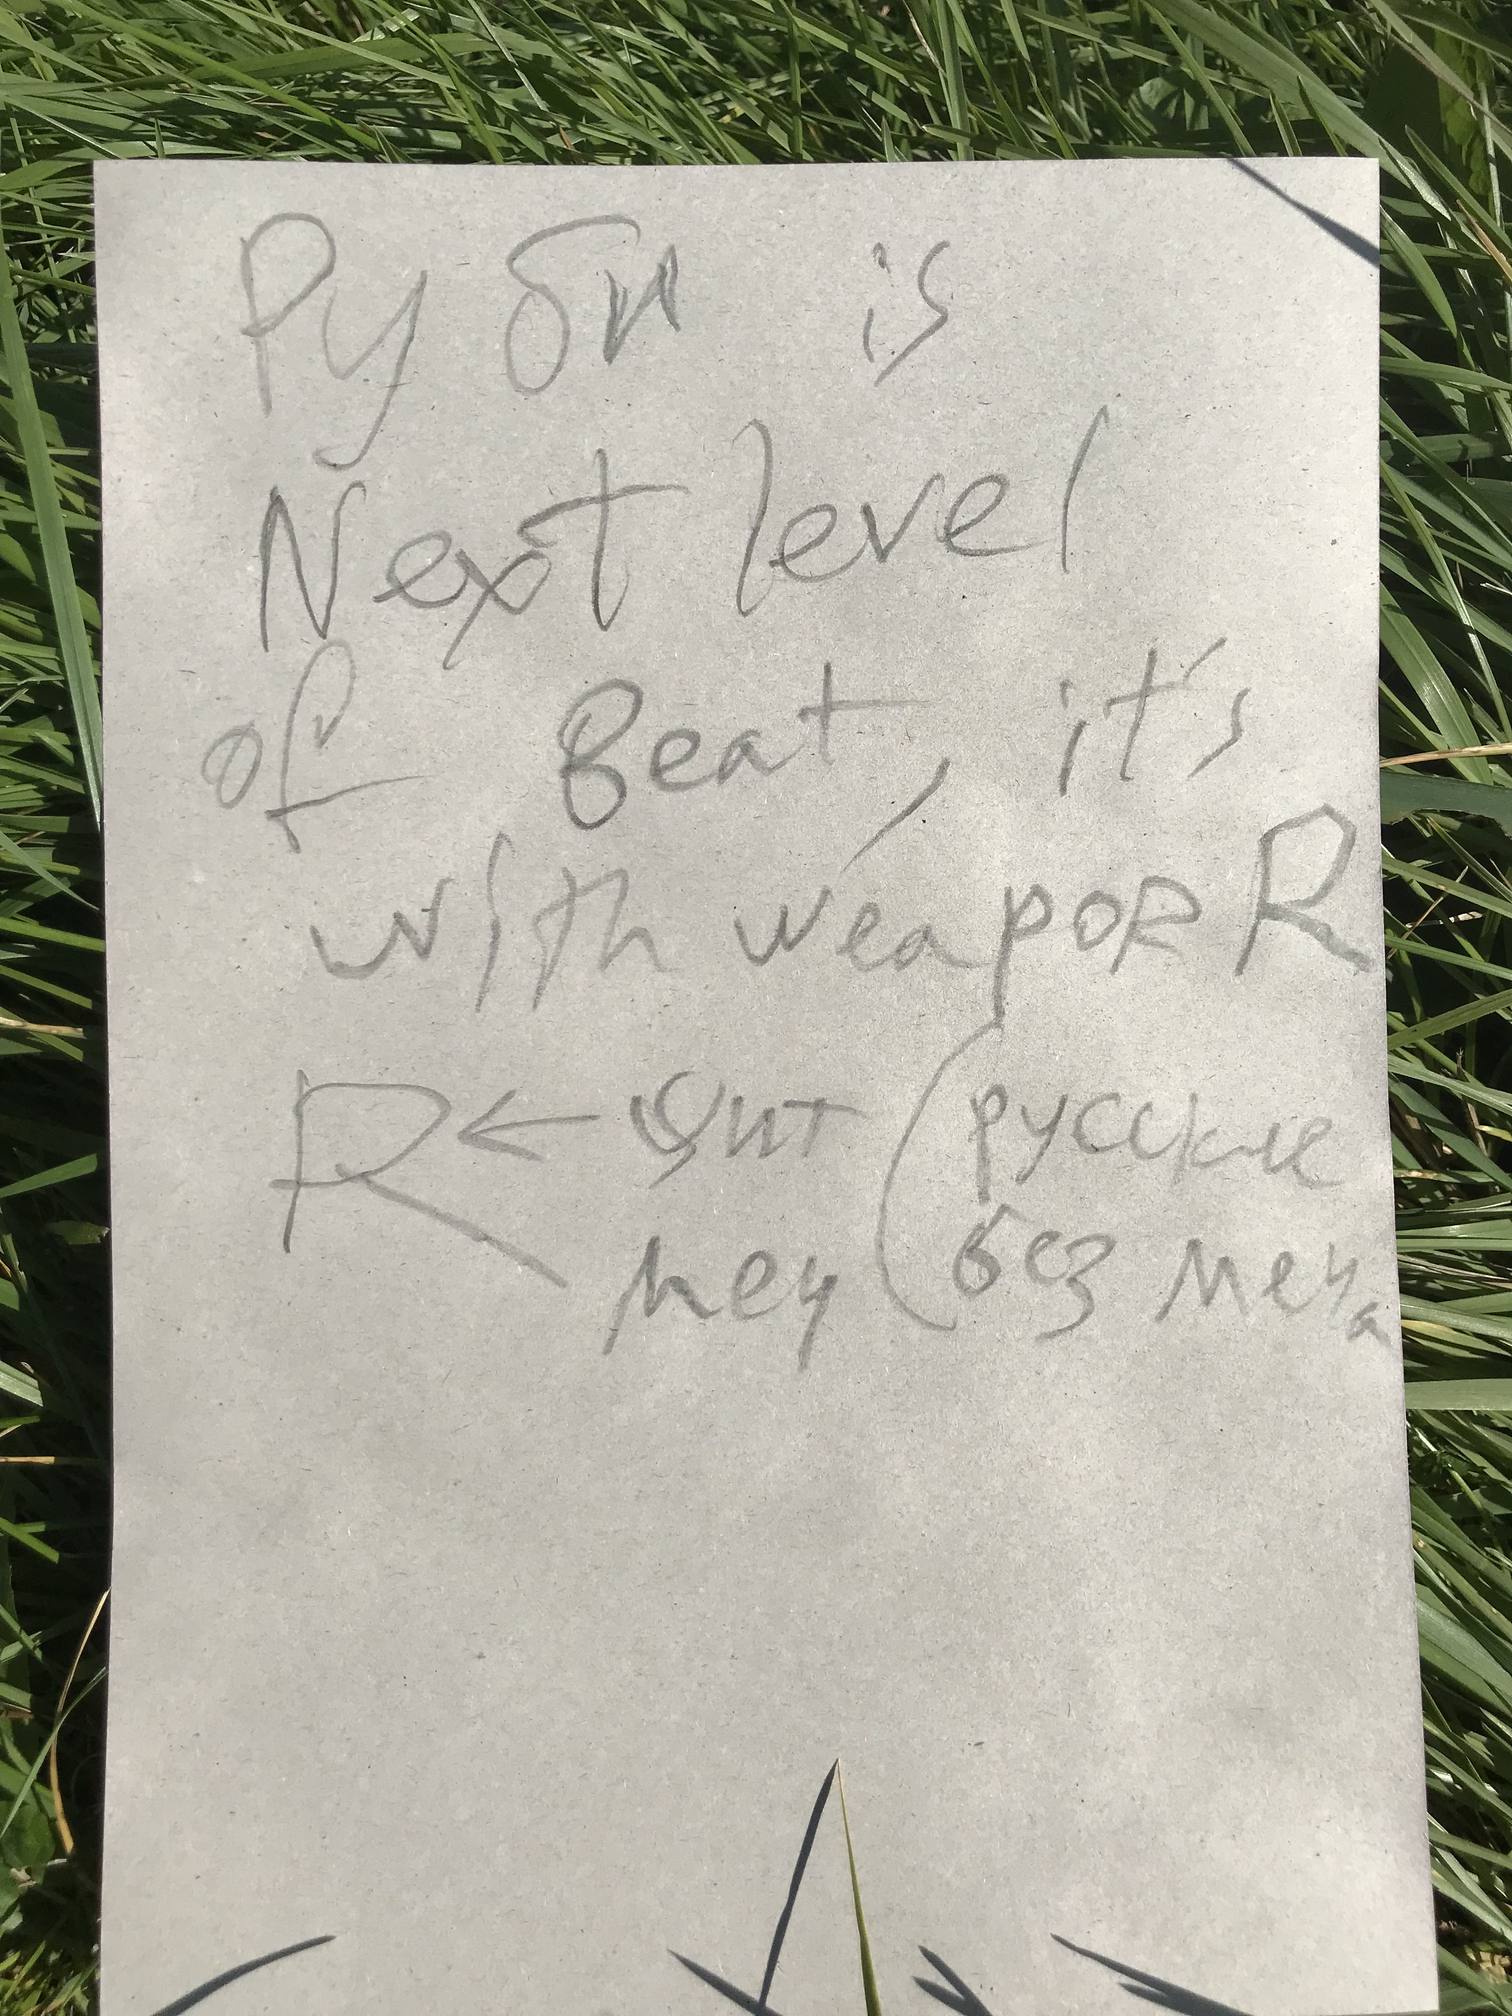 Руби is
Next level
of Beat, it's
with weapoR R
R ← щит (русские
меч (без меча